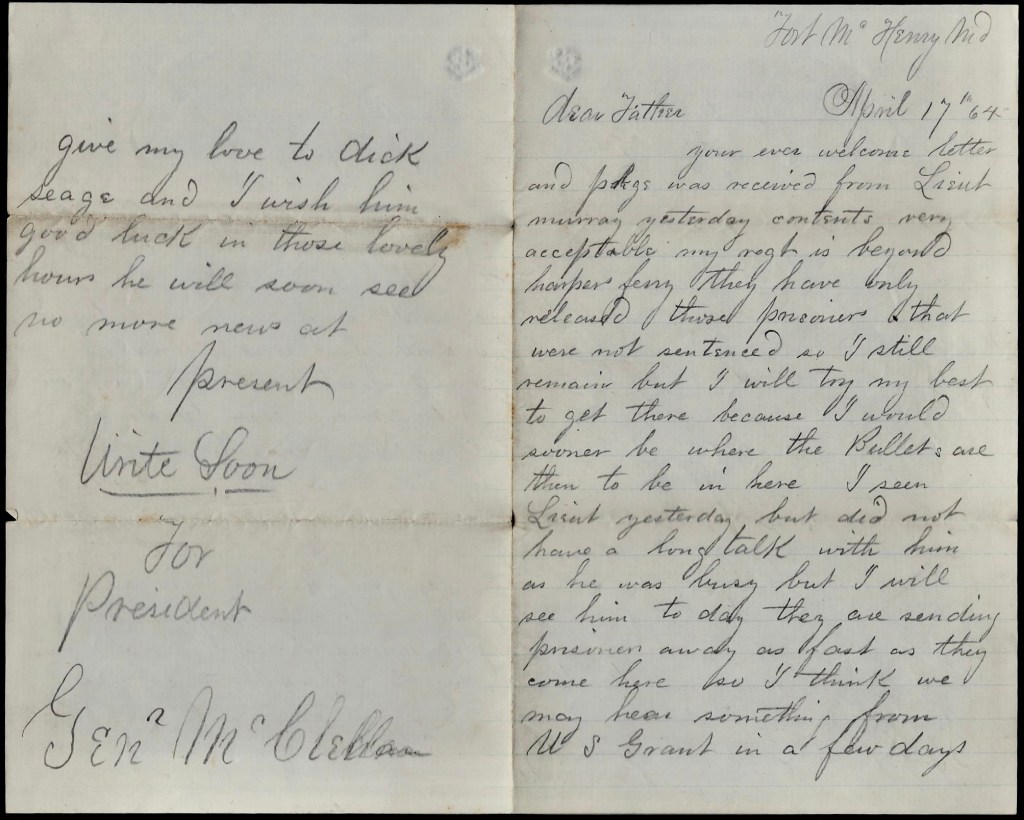 Fort Mc Henry Md
April 17th 64
dear Father
your ever welcome letter
and pakge was received from Lieut
murray yesterday contents very
acceptable my regt is beyond
harpers ferry they have only
released those prisoners that
were not sentenced so I still
remain but I will try my best
to get there because I would
sooner be where the Bullets are
then to be in here I seen
Lieut yesterday but did not
have a long talk with him
as he was busy but I will
see him to day they are sending
prisoners away as fast as they
come here so I think we
may hear something from
U S Grant in a few days
give my love to dick
seage and I wish him
good luck in those lovely
hours he will soon see
no more news at
present
Write Soon
For
President
Genr Mc Clellan